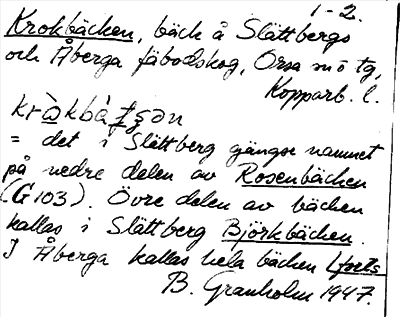 1-2.
Krokbäcken, bäck å Slättbergs
och Åberga fäbodskog, Orsa snö tg,
Kopparb. l.
kròkbàt̠s̠ən
= det i Slättberg gängse namnet
på nedre delen av Rosenbäcken
(G103). Övre delen av bäcken
kallas i Slättberg Björkbäcken.
I Åberga kallas hela bäcken (forts
B. Granholm 1947.